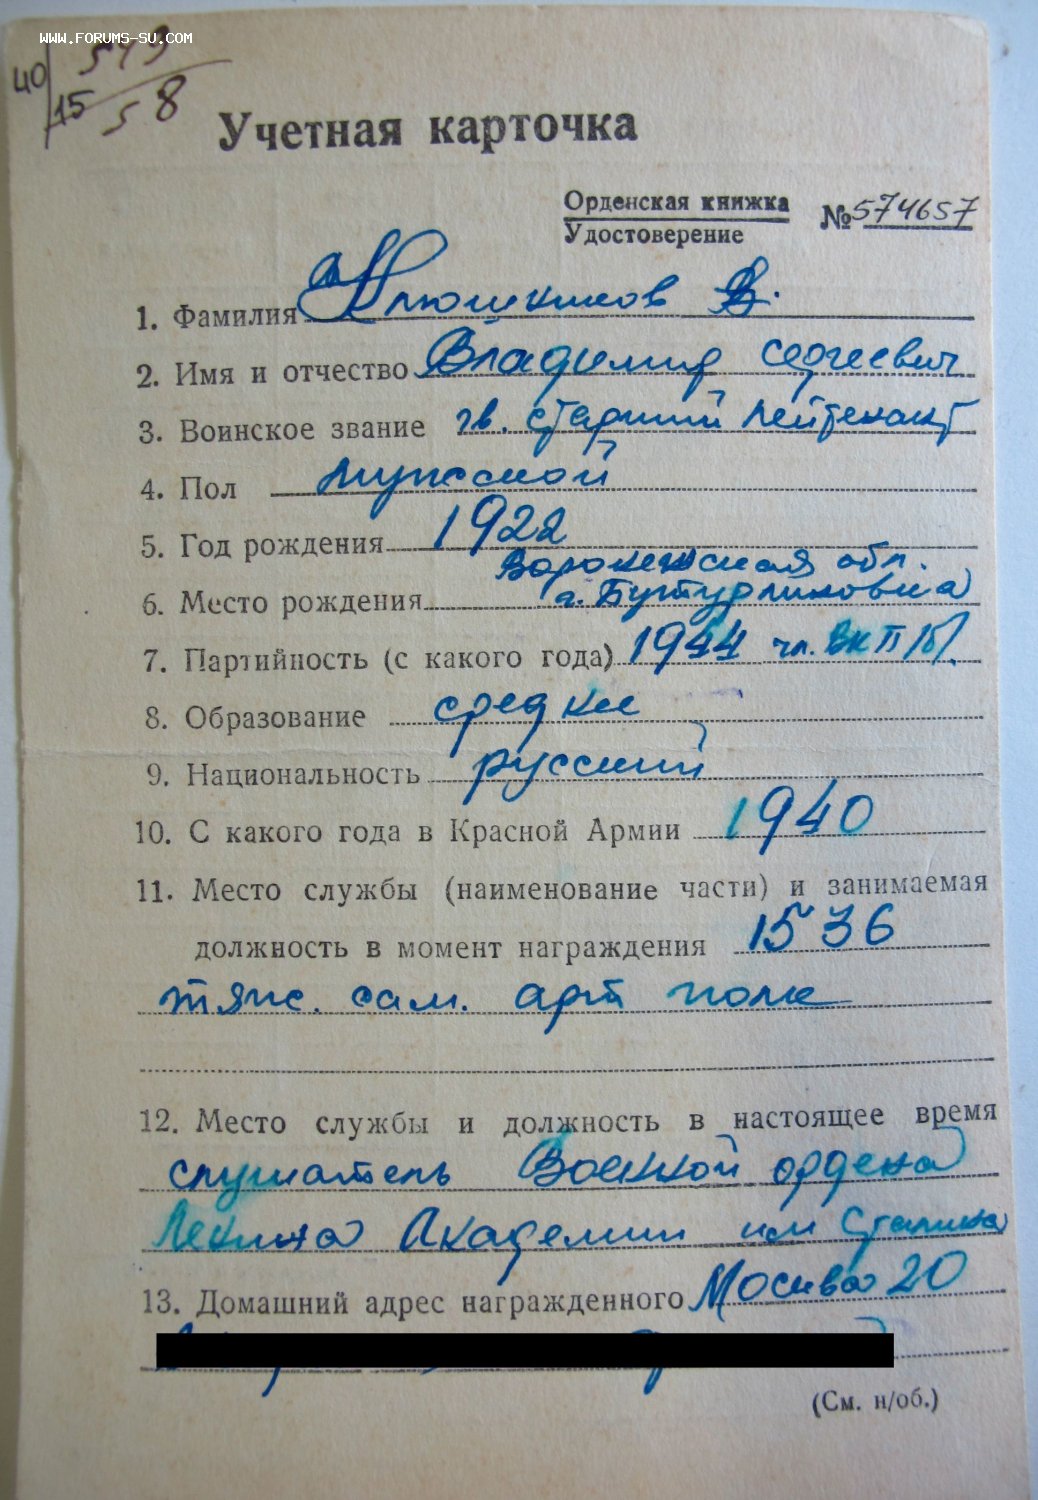 WWW.FORUMS-SU.COM
40
15 58
Учетная карточка
Орденская книжка
Удостоверение
№ 574657
1. Фамилия
2. Имя и отчество Владимир Сергеевич
3. Воинское звание гв. старший лейтенант
4. Пол мужской
5. Год рождения 1922
Воронежская обл.
6. Место рождения с. Бутурлиновка
7. Партийность (с какого года) 1944 чл. ВКП(б)
8. Образование среднее
9. Национальность русский
10. С какого года в Красной Армии 1940
11. Место службы (наименование части) и занимаемая
должность в момент награждения 1536
тяж. сам. арт полк
12. Место службы и должность в настоящее время
слушатель Военной ордена
Ленина Академии им Сталина
13. Домашний адрес награжденного Москва 20
(См. н/об.)